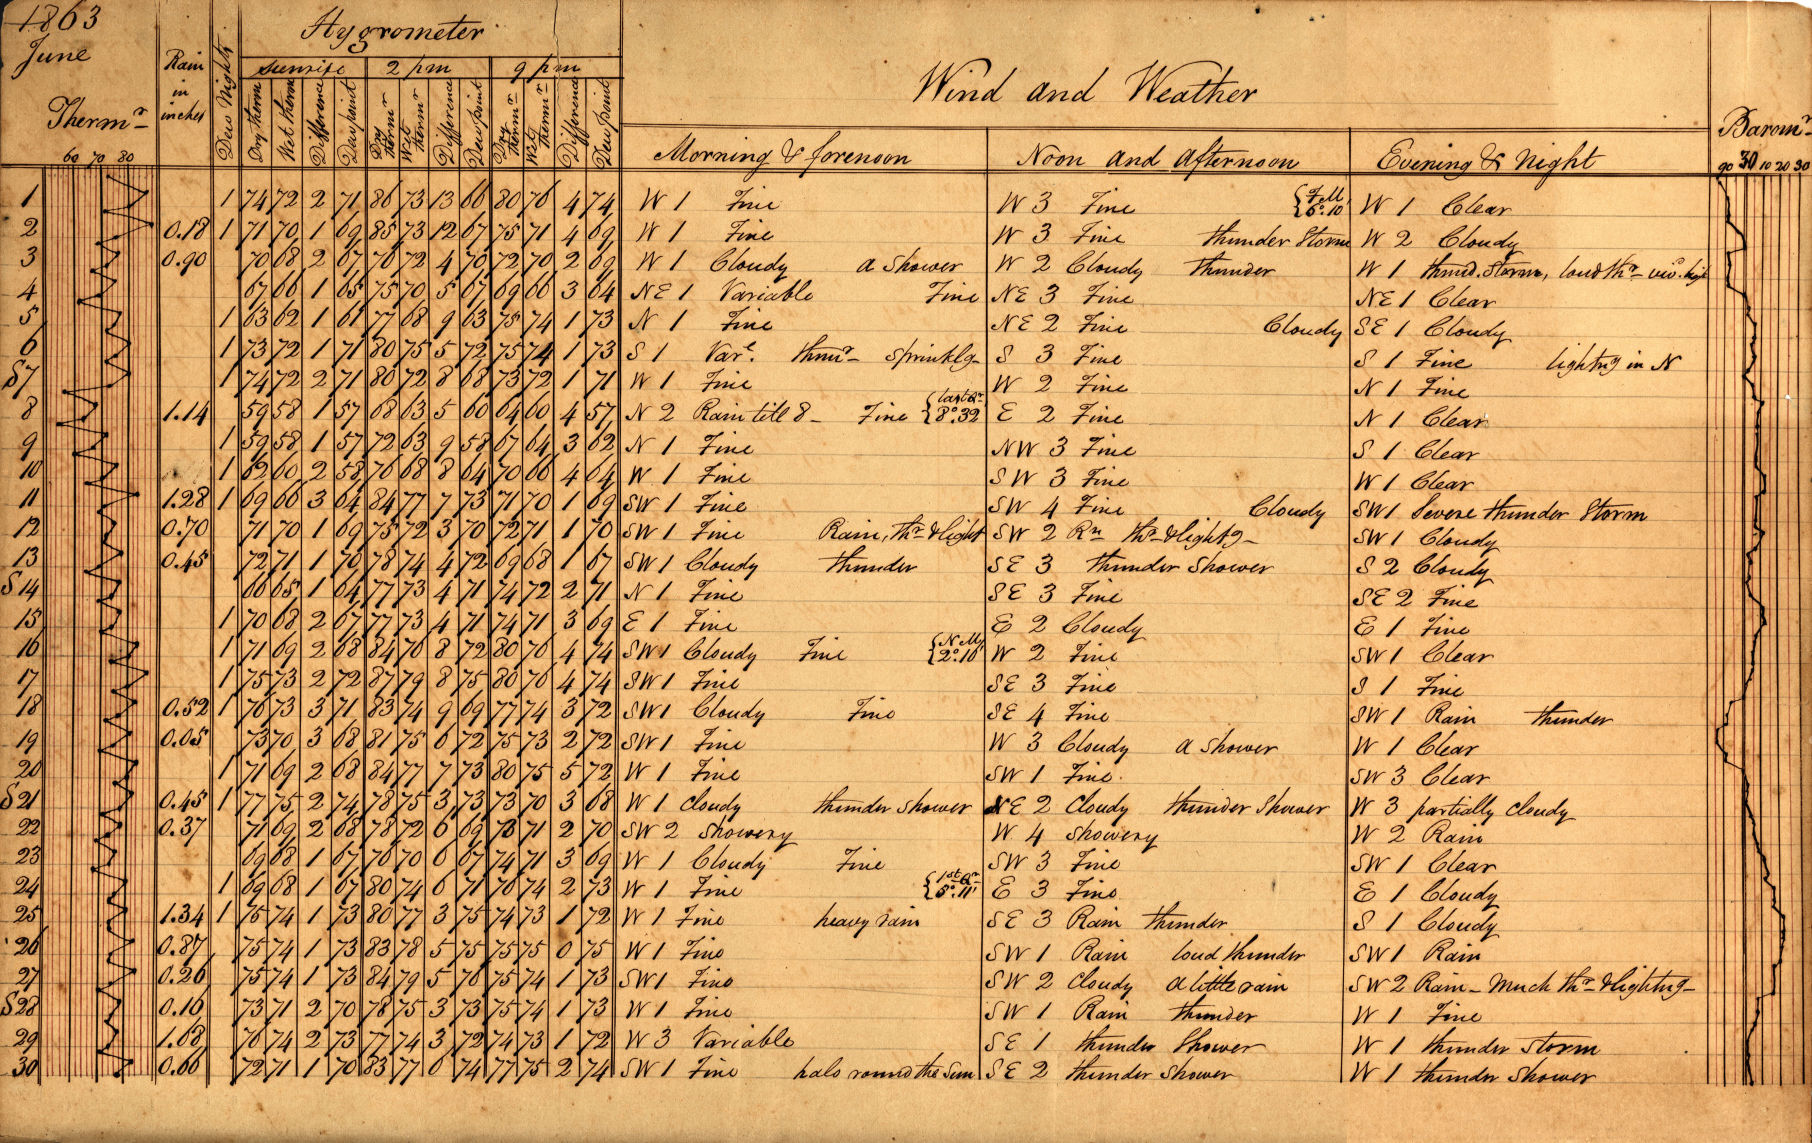 1863
June
Hygrometer
Wind and Weather
Therm^r
Rain in inches
Dew Nights
sunrise 2 pm 9 pm
Barom^r
60 70 80
Dry therm Wet therm Difference Dew point Dry therm^r Wet therm^r Difference Dew point Dry therm^r Wet therm^r Difference Dew point
Morning & forenoon Noon and afternoon Evening & Night
90 30 10 20 30
1 1 74 72 2 71 86 73 13 66 80 76 4 74 W 1 Fine W 3 Fine {F. M. 6°.10' W 1 Clear
2 0.18 1 71 70 1 69 85 73 12 67 75 71 4 69 W 1 Fine W 3 Fine thunder Storm W 2 Cloudy
3 0.90 70 68 2 67 76 72 4 70 72 70 2 69 W 1 Cloudy a Shower W 2 Cloudy thunder W 1 thund. Storm, loud th^r
4 67 66 1 65 75 70 5 67 69 66 3 64 NE 1 Variable Fine NE 3 Fine NE 1 Clear
5 1 63 62 1 61 77 68 9 63 75 74 1 73 N 1 Fine NE 2 Fine Cloudy SE 1 Cloudy
6 1 73 72 1 71 80 75 5 72 75 74 1 73 S 1 Var^e. thun^r sprinklg S 3 Fine S 1 Fine lightng in N
S7 1 74 72 2 71 80 72 8 68 73 72 1 71 W 1 Fine W 2 Fine N 1 Fine
8 1.14 59 58 1 57 68 63 5 60 64 60 4 57 N 2 Rain till 8 - Fine {last Qr 8°.32 E 2 Fine N 1 Clear
9 1 59 58 1 57 72 63 9 58 67 64 3 62 N 1 Fine NW 3 Fine S 1 Clear
10 1 62 60 2 58 76 68 8 64 70 66 4 64 W 1 Fine SW 3 Fine W 1 Clear
11 1.28 1 69 66 3 64 84 77 7 73 71 70 1 69 SW 1 Fine SW 4 Fine Cloudy SW 1 Severe thunder Storm
12 0.70 71 70 1 69 75 72 3 70 72 71 1 70 SW 1 Fine Rain, th^r & light SW 2 R^n th^r & lightg - SW 1 Cloudy
13 0.45 72 71 1 70 78 74 4 72 69 68 1 67 SW 1 Cloudy thunder SE 3 thunder Shower S 2 Cloudy
S14 66 65 1 64 77 73 4 71 74 72 2 71 N 1 Fine SE 3 Fine SE 2 Fine
15 1 70 68 2 67 77 73 4 71 74 71 3 69 E 1 Fine E 2 Cloudy E 1 Fine
16 1 71 69 2 68 84 76 8 72 80 76 4 74 SW 1 Cloudy Fine {N. M. 2°.10' W 2 Fine SW 1 Clear
17 1 75 73 2 72 87 79 8 75 80 76 4 74 SW 1 Fine SE 3 Fine S 1 Fine
18 0.52 1 76 73 3 71 83 74 9 69 77 74 3 72 SW 1 Cloudy Fine SE 4 Fine SW 1 Rain thunder
19 0.05 73 70 3 68 81 75 6 72 75 73 2 72 SW 1 Fine W 3 Cloudy a shower W 1 Clear
20 1 71 69 2 68 84 77 7 73 80 75 5 72 W 1 Fine SW 1 Fine. SW 3 Clear
S21 0.45 1 77 75 2 74 78 75 3 73 73 70 3 68 W 1 Cloudy thunder shower NE 2 Cloudy thunder Shower W 3 partially cloudy
22 0.37 71 69 2 68 78 72 6 69 73 71 2 70 SW 2 Showery W 4 showery W 2 Rain
23 69 68 1 67 76 70 6 67 74 71 3 69 W 1 Cloudy Fine SW 3 Fine SW 1 Clear
24 1 69 68 1 67 80 74 6 71 76 74 2 73 W 1 Fine {1st Qr 5°.11' E 3 Fine E 1 Cloudy
25 1.34 1 75 74 1 73 80 77 3 75 74 73 1 72 W 1 Fine heavy rain SE 3 Rain thunder S 1 Cloudy
26 0.87 75 74 1 73 83 78 5 75 75 75 0 75 W 1 Fine SW 1 Rain loud thunder SW 1 Rain
27 0.26 75 74 1 73 84 79 5 76 75 74 1 73 SW 1 Fine SW 2 Cloudy a little rain SW 2 Rain - Much th^r & lightng -
S28 0.16 73 71 2 70 78 75 3 73 75 74 1 73 W 1 Fine SW 1 Rain thunder W 1 Fine
29 1.68 76 74 2 73 77 74 3 72 74 73 1 72 W 3 Variable SE 1 thunder Shower W 1 thunder storm
30 0.66 72 71 1 70 83 77 6 74 77 75 2 74 SW 1 Fine halo round the Sun SE 2 thunder shower W 1 thunder shower